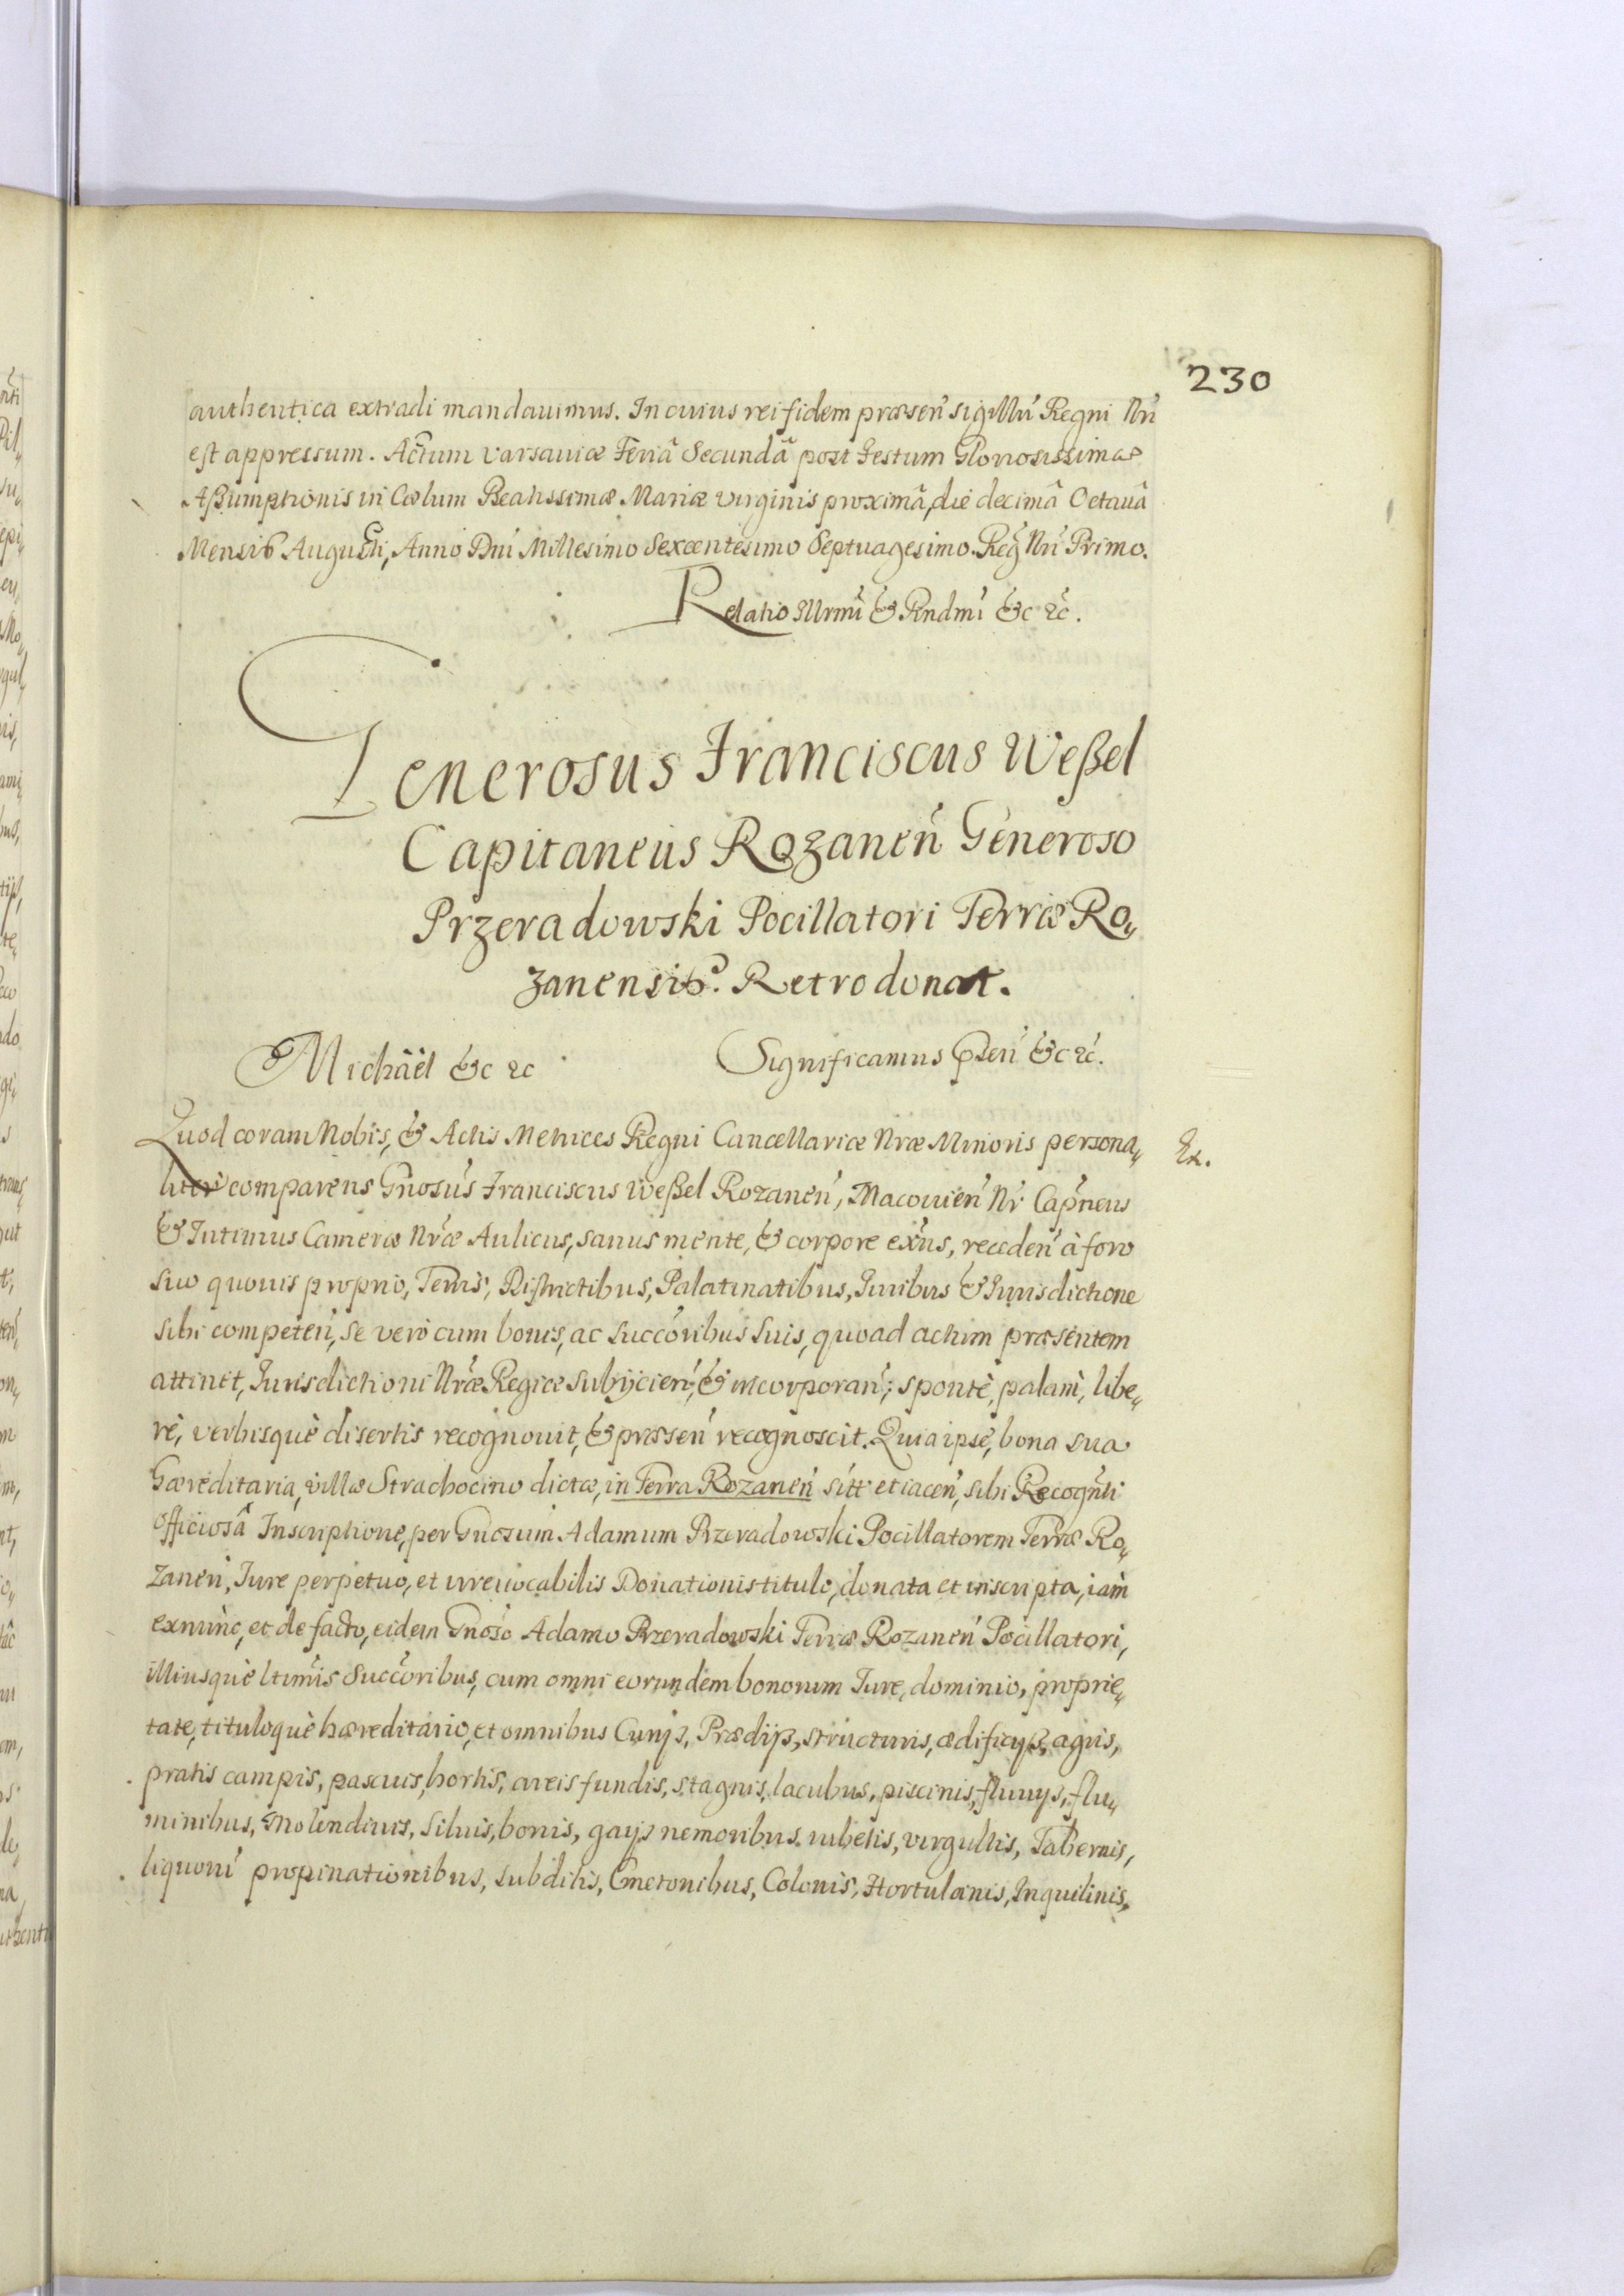 230
authentica extradi mandauimus. In cuius rei fidem præsen̄ sigillū Regni Nrī
est appressum. Actum Varsaviæ Feriâ Secundâ post Festum Gloriosissimæ
Aßumptionis in Cœlum Beatissimæ Mariæ Virginis proximâ, die decimâ Octauâ
Mensis Augusti, Anno Dnī Millesimo Sexcentesimo Septuagesimo. Reg̃ Nrī Primo.
Relatio Illrmī & Rndmī &c &c.
Generosus Franciscus Weßel
Capitaneus Rozanen̄ Generoso
Przeradowski Pocillatori Terræ Ro„
zanensis. Retrodonat.
Michäel &c &c Significamus p̄sen̄ &c &c.
Quod coram Nobis, & Actis Metrices Regni Cancellariæ Nræ Minoris persona„
Ex.
liter comparens Gnōsus Franciscus Weßel Rozanen̄, Macouien̄ Nr̄ Capn̄eus
& Intimus Cameræ Nrǣ Aulicus, sanus mente, & corpore exn̄s, receden̄ à foro
suo quouis proprio, Terris, Districtibus, Palatinatibus, Iuribus & Iurisdictione
sibi competen̄, se verò cum bonis, ac succōribus suis, quoad actum præsentem
attinet, Iurisdictioni Nrǣ Regiæ subijcien̄, & incorporan̄; spontè, palam̀, libe„
rè, verbisquè disertis recognouit, & præsen̄ recognoscit. Quia ipse, bona sua
hæreditaria, villæ Strachocino dictæ, in Terra Rozanen̄ sitt̄ et iacen̄, sibi Recognt̄i
officiosâ Inscriptione, per Gnōsum Adamum Przeradowski Pocillatorem Terræ Ro„
zanen̄, Iure perpetuo, et irreuocabilis Donationis titulo, donata et inscripta, iam̀
exnunc̀, et de facto, eidem Gnōso Adamo Przeradowski Terræ Rozanen̄ Pocillatori,
illiusquè ltimīs Succōribus, cum omni eorundem bonorum Iure, dominio, proprie„
tate, tituloquè hæreditario, et omnibus Curijs, Prædijs, structuris, ædificijs, agris,
pratis campis, pascuis, hortis, areis fundis, stagnis, lacubus, piscinis, fluuijs, flu„
minibus, Molendinis, siluis, boris, gays nemoribus rubetis, virgultis, Tabernis,
liquorū propinationibus, subditis, Cmetonibus, Colonis, Hortulanis, Inquilinis,